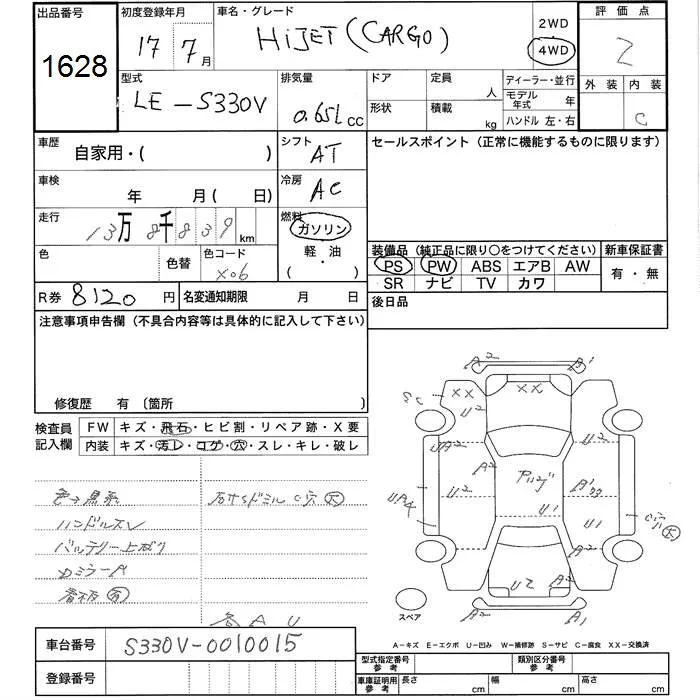 出品番号
1628
初度登録年月
17 7月
車名・グレード
HiJET (CARGO)
2WD
4WD
評価点
2
外装 内装
C
型式
LE-S330V
排気量
0.65L cc
ドア
形状
定員 人
積載 kg
ディーラー・並行
モデル年式 年
ハンドル 左・右
車歴
自家用・( )
シフト
AT
セールスポイント (正常に機能するものに限ります)
車検
年 月( 日)
冷房
AC
走行
13万8千839 km
燃料
ガソリン
軽・油
( )
色
色替
色コード
X06
装備品 (純正品に限り○をつけてください)
PS PW ABS エアB AW
SR ナビ TV カワ
新車保証書
有・無
R券 8120 円
名変通知期限 月 日
後日品
注意事項申告欄 (不具合内容等は具体的に記入して下さい)
修復歴 有 〔箇所 〕
検査員記入欄
FW キズ・飛石・ヒビ割・リペア跡・X要
内装 キズ・汚レ・コゲ・穴・スレ・キレ・破レ
ハンドルスレ
バッテリー上がり
看板
各 A U
A2 B1
XX XX
U2
A2
A2
U2 U2
U1
U1
A2
U2
A2
A2 A1
スペア
A-キズ E-エクボ U-凹み W-補修跡 S-サビ C-腐食 XX-交換済
車台番号
S330V-0010015
登録番号
型式指定番号
参考
類別区分番号
参考
車庫証明用
参考
長さ cm
幅 cm
高さ cm